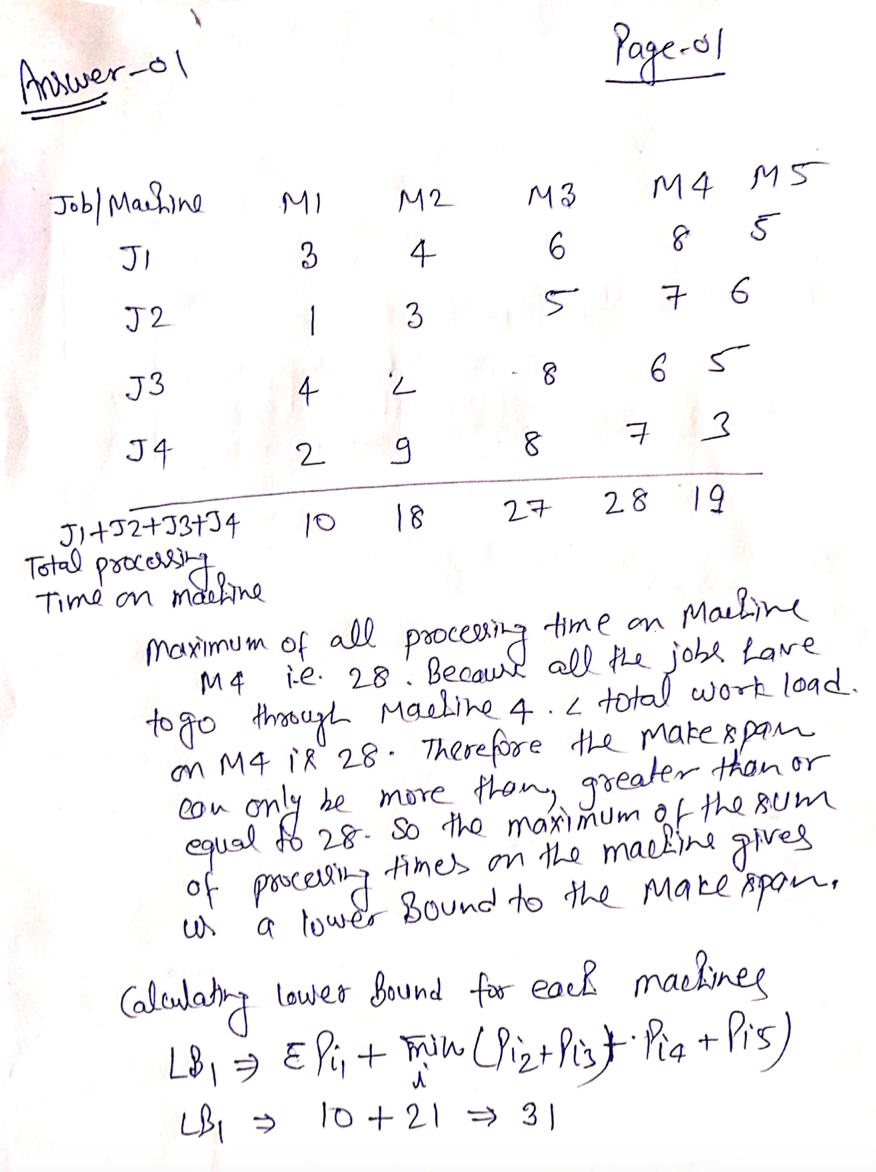 Answer-01
Page-01
Job/Machine M1 M2 M3 M4 M5
J1 3 4 6 8 5
J2 1 3 5 7 6
J3 4 2 8 6 5
J4 2 9 8 7 3
J1+J2+J3+J4 10 18 27 28 19
Total processing
Time on machine
Maximum of all processing time on Machine
M4 i.e. 28. Because all the jobs have
to go through Machine 4. & total work load.
on M4 is 28. Therefore the makespan
can only be more than, greater than or
equal to 28. So the maximum of the sum
of processing times on the machine gives
us a lower Bound to the Makespan.
Calculating lower Bound for each machines
LB1 ⇒ ΣPi1 + min (Pi2+Pi3)+Pi4+Pi5)
i
LB1 ⇒ 10 + 21 ⇒ 31